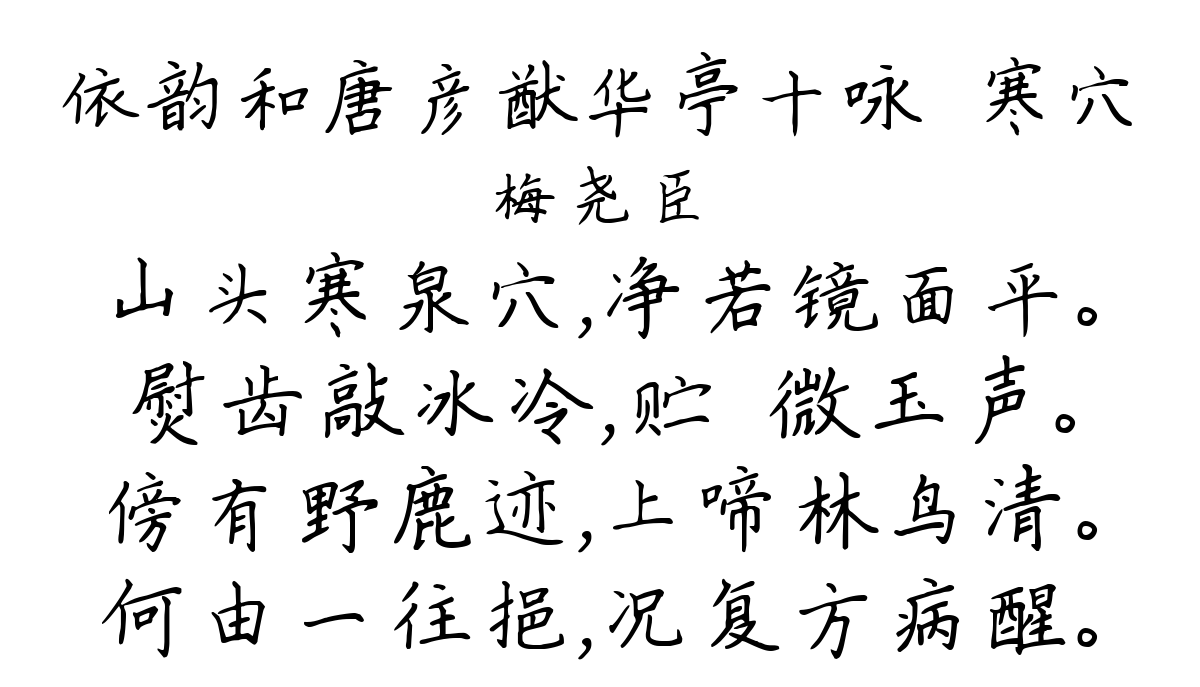 依韵和唐彦猷华亭十咏 寒穴
梅尧臣
山头寒泉穴,净若镜面平。
熨齿敲冰冷,贮 微玉声。
傍有野鹿迹,上啼林鸟清。
何由一往挹,况复方病醒。